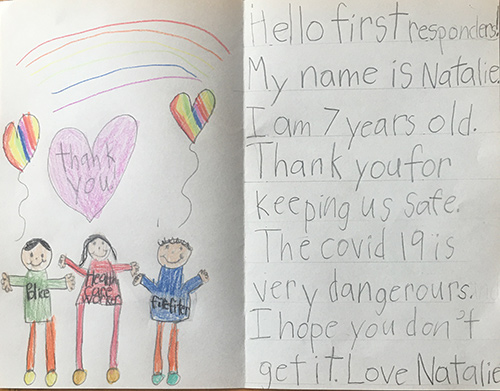 thank
you.
Police
Health
Care
Worker
firefiter
Hello first responders!
My name is Natalie.
I am 7 years old.
Thank you for
keeping us safe.
The covid 19 is
very dangerours.
I hope you don't
get it. Love Natalie